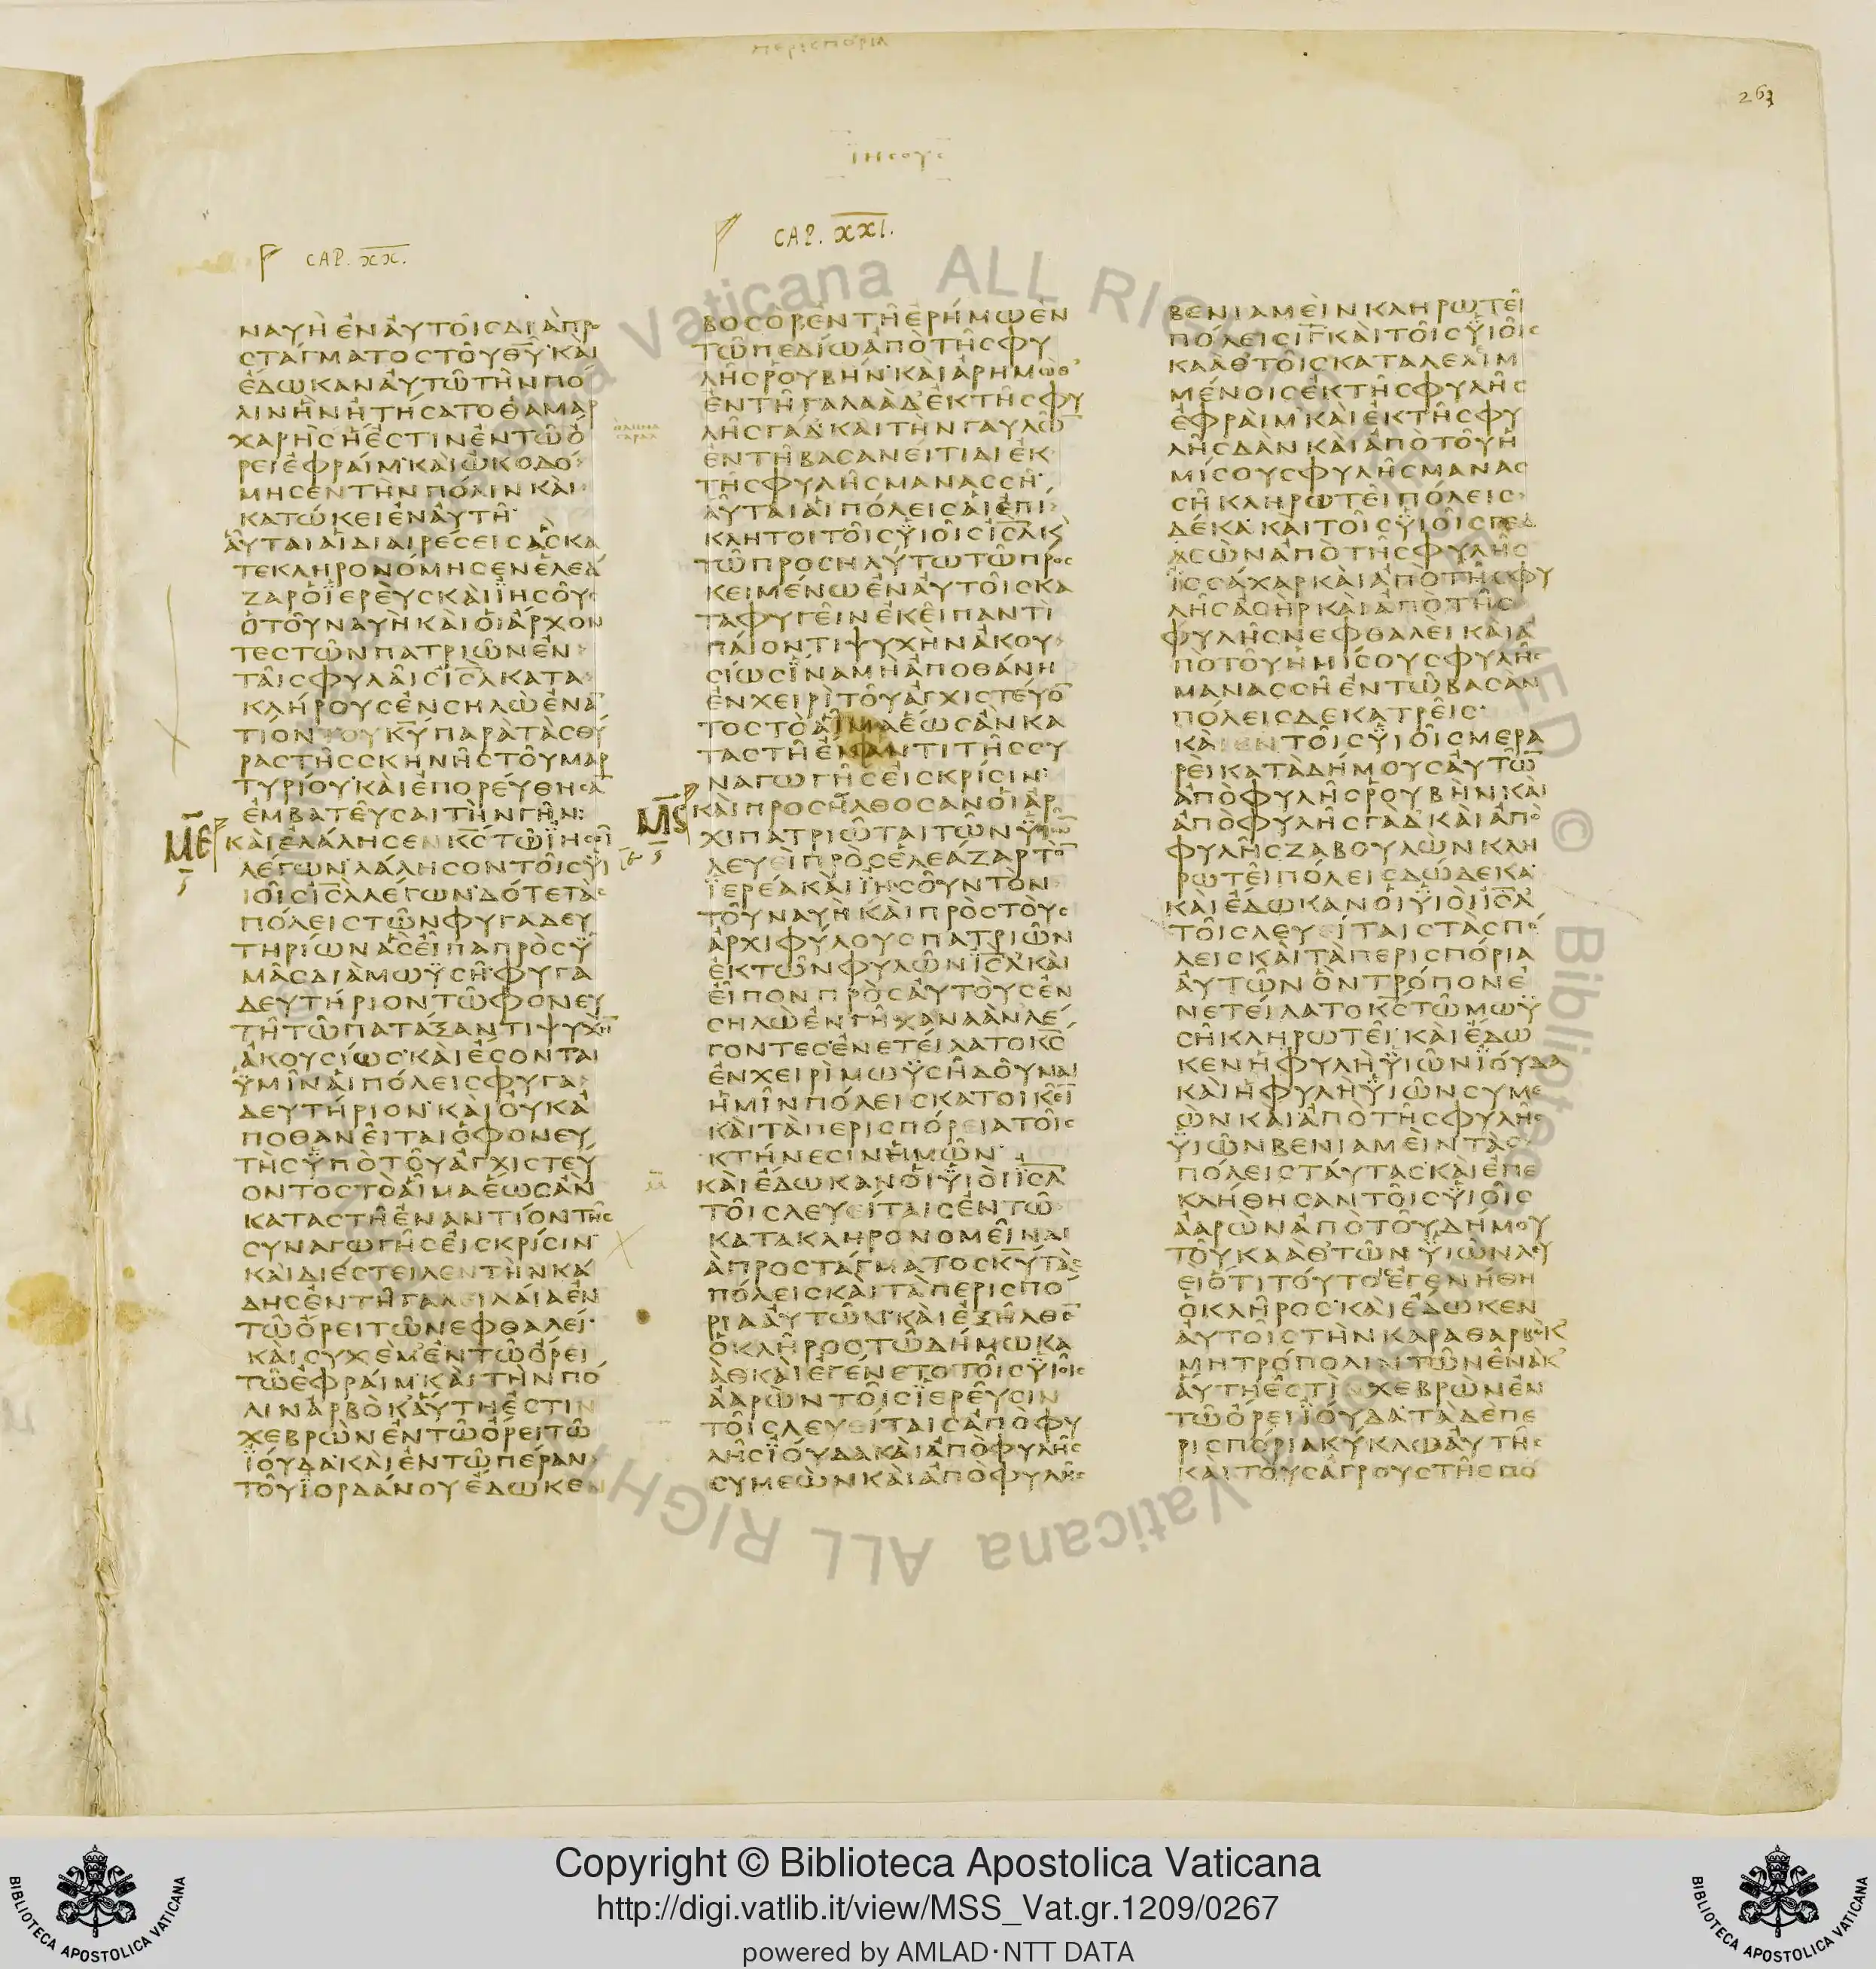 περισπορια
263
ΙΗϹΟΥϹ
CAP. XX.
CAP. XXI.
ΝΑΥῊ ἘΝ ἈΥΤΟΙϹ ΔΙᾺ ΠΡΟ
ϹΤΆΓΜΑΤΟϹ ΤΟΥ ΘΥ ΚΑΙ
ἘΔΩΚΑΝ ΑΥΤΩ ΤΗΝ ΠΟ
ΛΙΝ ΗΝ ΗΤΗϹΑΤΟ ΘΑΜΑΡ
ΧΑΡΗϹ Η ΕϹΤΙΝ ΕΝ ΤΩ Ο
ΡΕΙ ΕΦΡΑΙΜ ΚΑΙ ΩΚΟΔΟ
ΜΗϹΕΝ ΤΗΝ ΠΟΛΙΝ ΚΑΙ
ΚΑΤΩΚΕΙ ΕΝ ΑΥΤΗ
ΑΥΤΑΙ ΑΙ ΔΙΑΙΡΕϹΕΙϹ ΑϹ ΚΑ
ΤΕΚΛΗΡΟΝΟΜΗϹΕΝ ΕΛΕΑ
ΖΑΡ Ο ΙΕΡΕΥϹ ΚΑΙ ΙΗϹΟΥϹ
Ο ΤΟΥ ΝΑΥΗ ΚΑΙ ΟΙ ΑΡΧΟΝ
ΤΕϹ ΤΩΝ ΠΑΤΡΙΩΝ ΕΝ
ΤΑΙϹ ΦΥΛΑΙϹ ΙϹΛ ΚΑΤΑ
ΚΛΗΡΟΥϹ ΕΝ ϹΗΛΩ ΕΝΑΝ
ΤΙΟΝ ΤΟΥ ΚΥ ΠΑΡΑ ΤΑϹ ΘΥ
ΡΑϹ ΤΗϹ ϹΚΗΝΗϹ ΤΟΥ ΜΑΡ
ΤΥΡΙΟΥ ΚΑΙ ΕΠΟΡΕΥΘΗϹΑΝ
ΕΜΒΑΤΕΥϹΑΙ ΤΗΝ ΓΗΝ
ΜΕ
ΚΑΙ ΕΛΑΛΗϹΕΝ ΚϹ ΤΩ ΙΗϹΟΙ
ΛΕΓΩΝ ΛΑΛΗϹΟΝ ΤΟΙϹ ΥΙ
ΙΟΙϹ ΙϹΛ ΛΕΓΩΝ ΔΟΤΕ ΤΑϹ
ΠΟΛΕΙϹ ΤΩΝ ΦΥΓΑΔΕΥ
ΤΗΡΙΩΝ ΑϹ ΕΙΠΑ ΠΡΟϹ Υ
ΜΑϹ ΔΙΑ ΜΩΥϹΗ ΦΥΓΑ
ΔΕΥΤΗΡΙΟΝ ΤΩ ΦΟΝΕΥ
ΤΗ ΤΩ ΠΑΤΑΞΑΝΤΙ ΨΥΧΗΝ
ΑΚΟΥϹΙΩϹ ΚΑΙ ΕϹΟΝΤΑΙ
ΥΜΙΝ ΑΙ ΠΟΛΕΙϹ ΦΥΓΑ
ΔΕΥΤΗΡΙΟΝ ΚΑΙ ΟΥΚ Α
ΠΟΘΑΝΕΙΤΑΙ Ο ΦΟΝΕΥ
ΤΗϹ ΥΠΟ ΤΟΥ ΑΓΧΙϹΤΕΥ
ΟΝΤΟϹ ΤΟ ΑΙΜΑ ΕΩϹ ΑΝ
ΚΑΤΑϹΤΗ ΕΝΑΝΤΙΟΝ ΤΗϹ
ϹΥΝΑΓΩΓΗϹ ΕΙϹ ΚΡΙϹΙΝ
ΚΑΙ ΔΙΕϹΤΕΙΛΕΝ ΤΗΝ ΚΑ
ΔΗϹ ΕΝ ΤΗ ΓΑΛΕΙΛΑΙΑ ΕΝ
ΤΩ ΟΡΕΙ ΤΩ ΝΕΦΘΑΛΕΙ
ΚΑΙ ϹΥΧΕΜ ΕΝ ΤΩ ΟΡΕΙ
ΤΩ ΕΦΡΑΙΜ ΚΑΙ ΤΗΝ ΠΟ
ΛΙΝ ΑΡΒΟΚ ΑΥΤΗ ΕϹΤΙΝ
ΧΕΒΡΩΝ ΕΝ ΤΩ ΟΡΕΙ ΤΩ
ΙΟΥΔΑ ΚΑΙ ΕΝ ΤΩ ΠΕΡΑΝ
ΤΟΥ ΙΟΡΔΑΝΟΥ ΕΔΩΚΕΝ
ΒΟϹΟΡ ΕΝ ΤΗ ΕΡΗΜΩ ΕΝ
ΤΩ ΠΕΔΙΩ ΑΠΟ ΤΗϹ ΦΥ
ΛΗϹ ΡΟΥΒΗΝ ΚΑΙ ΑΡΗΜΩΘ
ΕΝ ΤΗ ΓΑΛΑΑΔ ΕΚ ΤΗϹ ΦΥ
ΛΗϹ ΓΑΔ ΚΑΙ ΤΗΝ ΓΑΥΛΩΝ
ΕΝ ΤΗ ΒΑϹΑΝΕΙΤΙΔΙ ΕΚ
ΤΗϹ ΦΥΛΗϹ ΜΑΝΑϹϹΗ
ΑΥΤΑΙ ΑΙ ΠΟΛΕΙϹ ΑΙ ΕΠΙ
ΚΛΗΤΟΙ ΤΟΙϹ ΥΙΟΙϹ ΙϹΛ ΚΑΙ
ΤΩ ΠΡΟϹΗΛΥΤΩ ΤΩ ΠΡΟϹ
ΚΕΙΜΕΝΩ ΕΝ ΑΥΤΟΙϹ ΚΑ
ΤΑΦΥΓΕΙΝ ΕΚΕΙ ΠΑΝΤΙ
ΠΑΙΟΝΤΙ ΨΥΧΗΝ ΑΚΟΥ
ϹΙΩϹ ΙΝΑ ΜΗ ΑΠΟΘΑΝΗ
ΕΝ ΧΕΙΡΙ ΤΟΥ ΑΓΧΙϹΤΕΥΟΝ
ΤΟϹ ΤΟ ΑΙΜΑ ΕΩϹ ΑΝ ΚΑ
ΤΑϹΤΗ ΕΝΑΝΤΙ ΤΗϹ ϹΥ
ΝΑΓΩΓΗϹ ΕΙϹ ΚΡΙϹΙΝ
ΜϚ
ΚΑΙ ΠΡΟϹΗΛΘΟϹΑΝ ΟΙ ΑΡ
ΧΙΠΑΤΡΙΩΤΑΙ ΤΩΝ ΥΙΩΝ
ΛΕΥΕΙ ΠΡΟϹ ΕΛΕΑΖΑΡ ΤΟΝ
ΙΕΡΕΑ ΚΑΙ ΙΗϹΟΥΝ ΤΟΝ
ΤΟΥ ΝΑΥΗ ΚΑΙ ΠΡΟϹ ΤΟΥϹ
ΑΡΧΙΦΥΛΟΥϹ ΠΑΤΡΙΩΝ
ΕΚ ΤΩΝ ΦΥΛΩΝ ΙϹΛ ΚΑΙ
ΕΙΠΟΝ ΠΡΟϹ ΑΥΤΟΥϹ ΕΝ
ϹΗΛΩ ΕΝ ΓΗ ΧΑΝΑΑΝ ΛΕ
ΓΟΝΤΕϹ ΕΝΕΤΕΙΛΑΤΟ ΚϹ
ΕΝ ΧΕΙΡΙ ΜΩΥϹΗ ΔΟΥΝΑΙ
ΗΜΙΝ ΠΟΛΕΙϹ ΚΑΤΟΙΚΕΙΝ
ΚΑΙ ΤΑ ΠΕΡΙϹΠΟΡΕΙΑ ΤΟΙϹ
ΚΤΗΝΕϹΙΝ ΗΜΩΝ
ΚΑΙ ΕΔΩΚΑΝ ΟΙ ΥΙΟΙ ΙϹΛ
ΤΟΙϹ ΛΕΥΕΙΤΑΙϹ ΕΝ ΤΩ
ΚΑΤΑΚΛΗΡΟΝΟΜΕΙΝ ΔΙ
Α ΠΡΟϹΤΑΓΜΑΤΟϹ ΚΥ ΤΑϹ
ΠΟΛΕΙϹ ΚΑΙ ΤΑ ΠΕΡΙϹΠΟ
ΡΙΑ ΑΥΤΩΝ ΚΑΙ ΕΞΗΛΘΕΝ
Ο ΚΛΗΡΟϹ ΤΩ ΔΗΜΩ ΚΑ
ΑΘ ΚΑΙ ΕΓΕΝΕΤΟ ΤΟΙϹ ΥΙΟΙϹ
ΑΑΡΩΝ ΤΟΙϹ ΙΕΡΕΥϹΙΝ
ΤΟΙϹ ΛΕΥΕΙΤΑΙϹ ΑΠΟ ΦΥ
ΛΗϹ ΙΟΥΔΑ ΚΑΙ ΑΠΟ ΦΥΛΗϹ
ϹΥΜΕΩΝ ΚΑΙ ΑΠΟ ΦΥΛΗϹ
ΒΕΝΙΑΜΕΙΝ ΚΛΗΡΩΤΕΙ
ΠΟΛΕΙϹ ΙΓ ΚΑΙ ΤΟΙϹ ΥΙΟΙϹ
ΚΑΑΘ ΤΟΙϹ ΚΑΤΑΛΕΛΙΜ
ΜΕΝΟΙϹ ΕΚ ΤΗϹ ΦΥΛΗϹ
ΕΦΡΑΙΜ ΚΑΙ ΕΚ ΤΗϹ ΦΥ
ΛΗϹ ΔΑΝ ΚΑΙ ΑΠΟ ΤΟΥ Η
ΜΙϹΟΥϹ ΦΥΛΗϹ ΜΑΝΑϹ
ϹΗ ΚΛΗΡΩΤΕΙ ΠΟΛΕΙϹ
ΔΕΚΑ ΚΑΙ ΤΟΙϹ ΥΙΟΙϹ ΓΕΔ
ϹΩΝ ΑΠΟ ΤΗϹ ΦΥΛΗϹ
ΙϹϹΑΧΑΡ ΚΑΙ ΑΠΟ ΤΗϹ ΦΥ
ΛΗϹ ΑϹΗΡ ΚΑΙ ΑΠΟ ΤΗϹ
ΦΥΛΗϹ ΝΕΦΘΑΛΕΙ ΚΑΙ Α
ΠΟ ΤΟΥ ΗΜΙϹΟΥϹ ΦΥΛΗϹ
ΜΑΝΑϹϹΗ ΕΝ ΤΩ ΒΑϹΑΝ
ΠΟΛΕΙϹ ΔΕΚΑΤΡΕΙϹ
ΚΑΙ ΕΝ ΤΟΙϹ ΥΙΟΙϹ ΜΕΡΑ
ΡΕΙ ΚΑΤΑ ΔΗΜΟΥϹ ΑΥΤΩΝ
ΑΠΟ ΦΥΛΗϹ ΡΟΥΒΗΝ ΚΑΙ
ΑΠΟ ΦΥΛΗϹ ΓΑΔ ΚΑΙ ΑΠΟ
ΦΥΛΗϹ ΖΑΒΟΥΛΩΝ ΚΛΗ
ΡΩΤΕΙ ΠΟΛΕΙϹ ΔΩΔΕΚΑ
ΚΑΙ ΕΔΩΚΑΝ ΟΙ ΥΙΟΙ ΙϹΛ
ΤΟΙϹ ΛΕΥΕΙΤΑΙϹ ΤΑϹ ΠΟ
ΛΕΙϹ ΚΑΙ ΤΑ ΠΕΡΙϹΠΟΡΙΑ
ΑΥΤΩΝ ΟΝ ΤΡΟΠΟΝ Ε
ΝΕΤΕΙΛΑΤΟ ΚϹ ΤΩ ΜΩΥ
ϹΗ ΚΛΗΡΩΤΕΙ ΚΑΙ ΕΔΩ
ΚΕΝ Η ΦΥΛΗ ΥΙΩΝ ΙΟΥΔΑ
ΚΑΙ Η ΦΥΛΗ ΥΙΩΝ ϹΥΜΕ
ΩΝ ΚΑΙ ΑΠΟ ΤΗϹ ΦΥΛΗϹ
ΥΙΩΝ ΒΕΝΙΑΜΕΙΝ ΤΑϹ
ΠΟΛΕΙϹ ΤΑΥΤΑϹ ΚΑΙ ΕΠΕ
ΚΛΗΘΗϹΑΝ ΤΟΙϹ ΥΙΟΙϹ
ΑΑΡΩΝ ΑΠΟ ΤΟΥ ΔΗΜΟΥ
ΤΟΥ ΚΑΑΘ ΤΩΝ ΥΙΩΝ ΛΕΥ
ΕΙ ΟΤΙ ΤΟΥΤΟ ΕΓΕΝΗΘΗ
Ο ΚΛΗΡΟϹ ΚΑΙ ΕΔΩΚΕΝ
ΑΥΤΟΙϹ ΤΗΝ ΚΑΡΑΘΑΡΒΟΚ
ΜΗΤΡΟΠΟΛΙΝ ΤΩΝ ΕΝΑΚ
ΑΥΤΗ ΕϹΤΙΝ ΧΕΒΡΩΝ ΕΝ
ΤΩ ΟΡΕΙ ΙΟΥΔΑ ΤΑ ΔΕ ΠΕ
ΡΙϹΠΟΡΙΑ ΚΥΚΛΩ ΑΥΤΗϹ
ΚΑΙ ΤΟΥϹ ΑΓΡΟΥϹ ΤΗϹ ΠΟ
Copyright © Biblioteca Apostolica Vaticana
http://digi.vatlib.it/view/MSS_Vat.gr.1209/0267
powered by AMLAD·NTT DATA
BIBLIOTECA APOSTOLICA VATICANA
BIBLIOTECA APOSTOLICA VATICANA